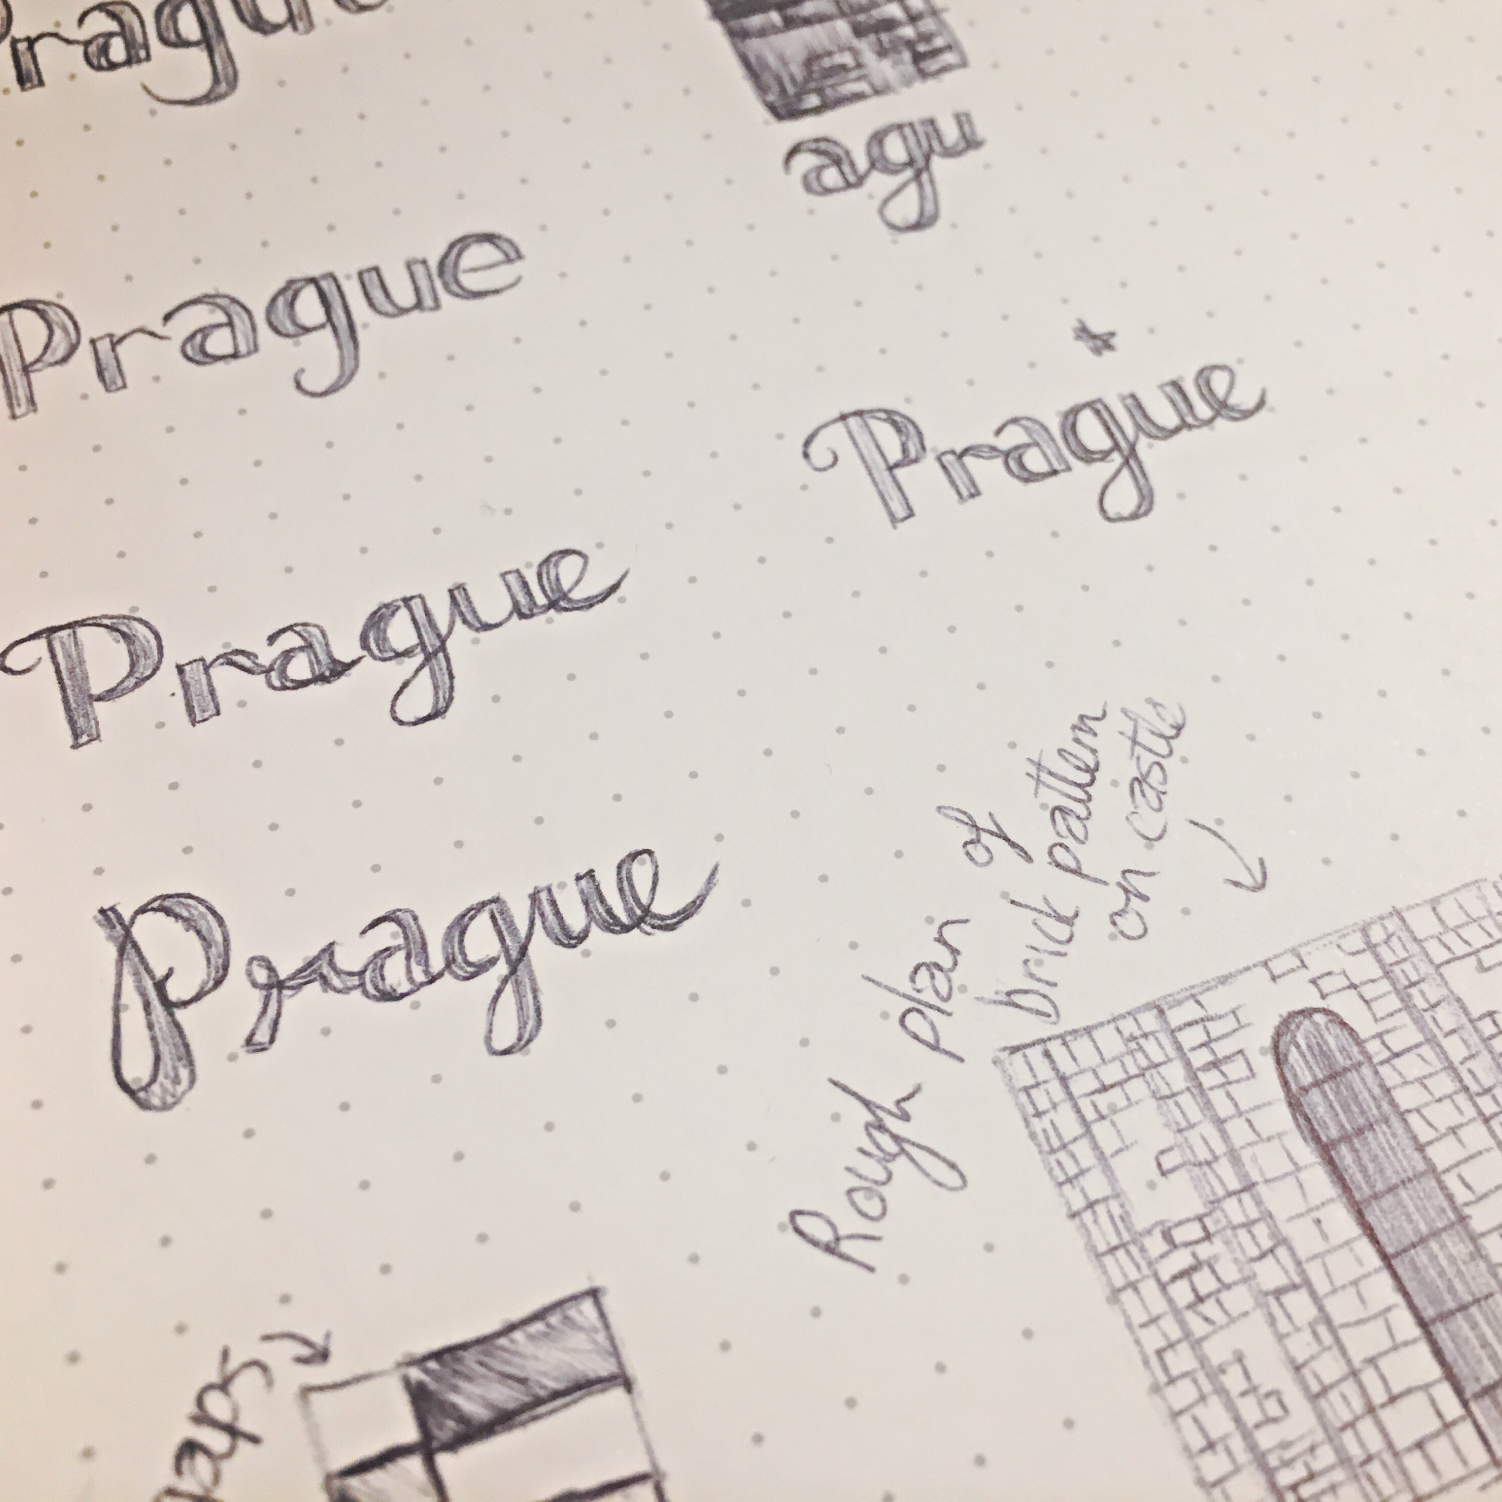 Prague
agu
Prague
Prague
Prague
Prague
Rough plan of
brick pattern
on castle